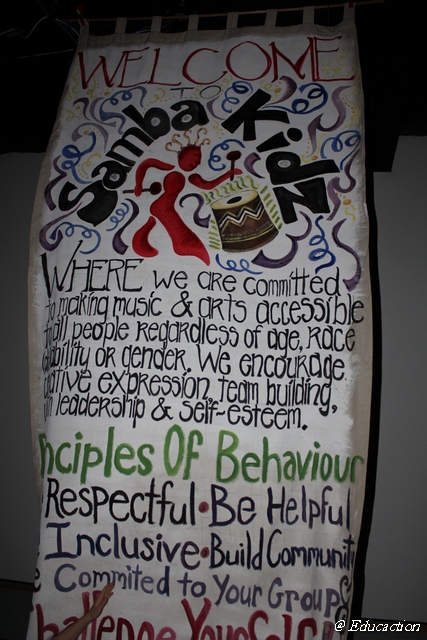 WELCOME
TO
Samba Kidz
WHERE we are committed
to making music & arts accessible
to all people regardless of age, race
ability or gender. We encourage
ative expression, team building,
leadership & self-esteem.
nciples Of Behaviour
Respectful • Be Helpful
Inclusive • Build Community
Commited to Your Group
Challenge Yourself
© Educaction